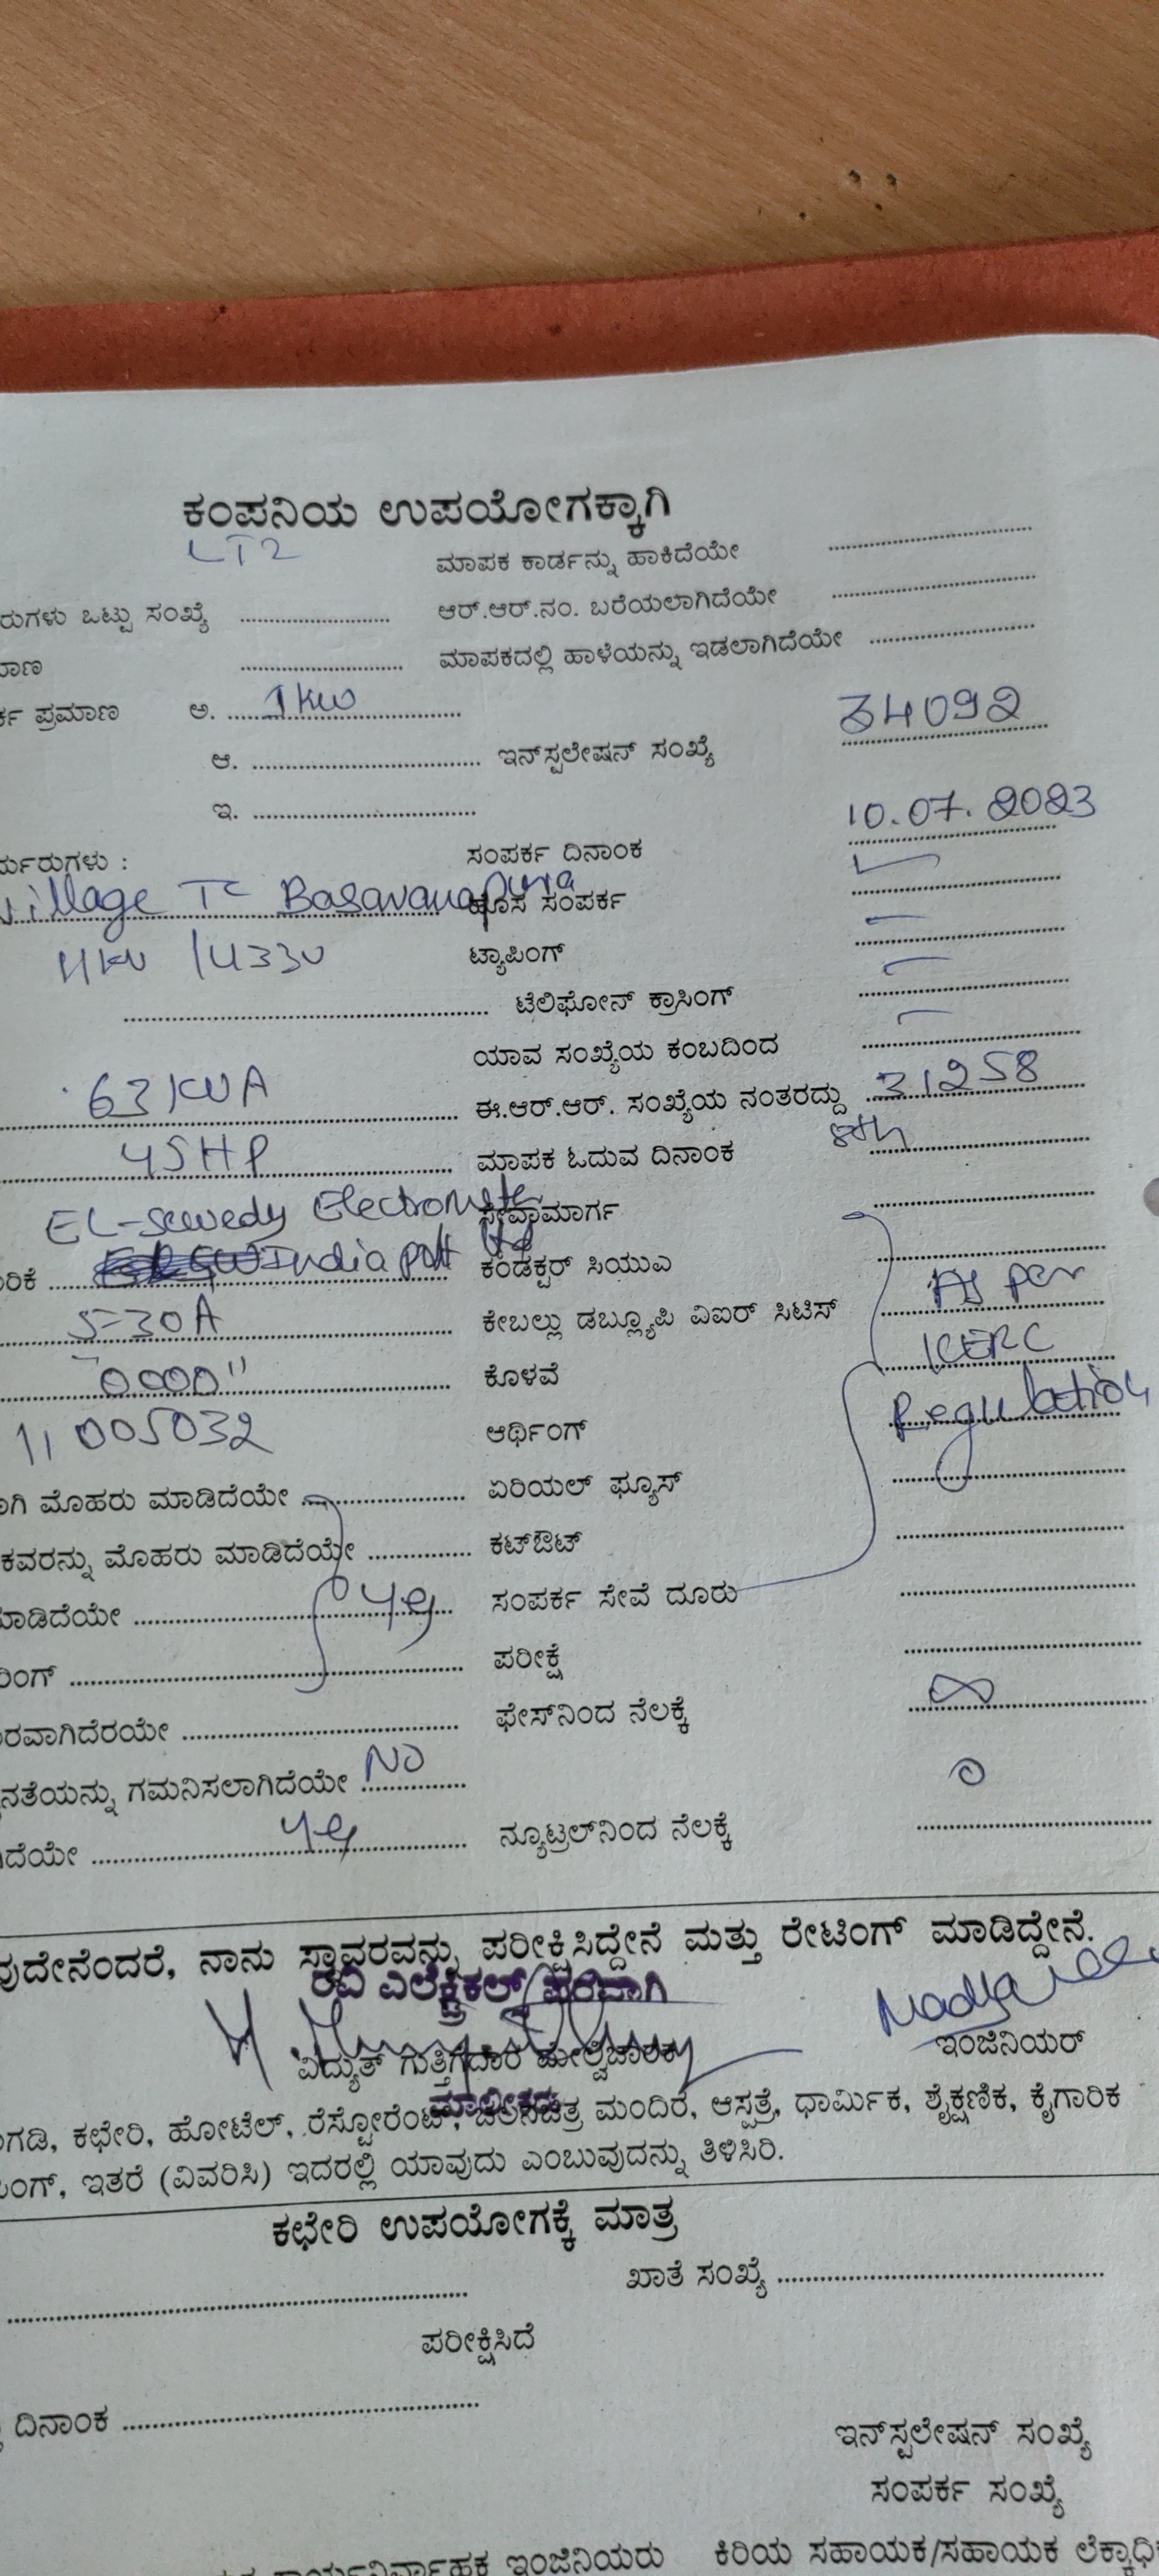 ಕಂಪನಿಯ ಉಪಯೋಗಕ್ಕಾಗಿ
LT2
ಮಾಪಕ ಕಾರ್ಡನ್ನು ಹಾಕಿದೆಯೇ
ರುಗಳು ಒಟ್ಟು ಸಂಖ್ಯೆ ಆರ್.ಆರ್.ನಂ. ಬರೆಯಲಾಗಿದೆಯೇ
ಮಾಪಕದಲ್ಲಿ ಹಾಳೆಯನ್ನು ಇಡಲಾಗಿದೆಯೇ
ಪ್ರಮಾಣ ಅ. 1 KW
ಆ. ಇನ್‌ಸ್ಟಲೇಷನ್ ಸಂಖ್ಯೆ 34092
ಇ.
ಸಂಪರ್ಕ ದಿನಾಂಕ 10.07.2023
village TC Basavanapura ಹೊಸ ಸಂಪರ್ಕ
11KV ಟ್ಯಾಪಿಂಗ್ –
ಟೆಲಿಫೋನ್ ಕ್ರಾಸಿಂಗ್ –
ಯಾವ ಸಂಖ್ಯೆಯ ಕಂಬದಿಂದ –
63 KVA ಈ.ಆರ್.ಆರ್. ಸಂಖ್ಯೆಯ ನಂತರದ್ದು 31258
45HP ಮಾಪಕ ಓದುವ ದಿನಾಂಕ 8th
EL-Sewedy Electrometer ಸೇವಾಮಾರ್ಗ
ರಿಕೆ India pvt ltd ಕಂಡಕ್ಟರ್ ಸಿಯುಎ
5-30A ಕೇಬಲ್ಲು ಡಬ್ಲ್ಯೂಪಿ ವಿಐಆರ್ ಸಿಟಿಸ್ As per
"0000" ಕೊಳವೆ KERC
11005032 ಆರ್ಥಿಂಗ್ Regulation
ಗಿ ಮೊಹರು ಮಾಡಿದೆಯೇ ಏರಿಯಲ್ ಫ್ಯೂಸ್
ಕವರನ್ನು ಮೊಹರು ಮಾಡಿದೆಯೇ ಕಟ್‌ಔಟ್
ಮಾಡಿದೆಯೇ yes ಸಂಪರ್ಕ ಸೇವೆ ದೂರು
ರಿಂಗ್ ಪರೀಕ್ಷೆ
ರವಾಗಿದೆರಯೇ ಫೇಸ್‌ನಿಂದ ನೆಲಕ್ಕೆ ∞
ನತೆಯನ್ನು ಗಮನಿಸಲಾಗಿದೆಯೇ NO
ದೆಯೇ yes ನ್ಯೂಟ್ರಲ್‌ನಿಂದ ನೆಲಕ್ಕೆ 0
ವುದೇನೆಂದರೆ, ನಾನು ಸ್ಥಾವರವನ್ನು ಪರೀಕ್ಷಿಸಿದ್ದೇನೆ ಮತ್ತು ರೇಟಿಂಗ್ ಮಾಡಿದ್ದೇನೆ.
ರವಿ ಎಲೆಕ್ಟ್ರಿಕಲ್ಸ್ ಪರವಾಗಿ
ವಿದ್ಯುತ್ ಗುತ್ತಿಗೆದಾರ ಮೇಲ್ವಿಚಾರಕ ಇಂಜಿನಿಯರ್
ಮಾಲೀಕರು
ಗಡಿ, ಕಛೇರಿ, ಹೋಟೆಲ್, ರೆಸ್ಟೋರೆಂಟ್, ಚಲನಚಿತ್ರ ಮಂದಿರ, ಆಸ್ಪತ್ರೆ, ಧಾರ್ಮಿಕ, ಶೈಕ್ಷಣಿಕ, ಕೈಗಾರಿಕ
ಂಗ್, ಇತರೆ (ವಿವರಿಸಿ) ಇದರಲ್ಲಿ ಯಾವುದು ಎಂಬುವುದನ್ನು ತಿಳಿಸಿರಿ.
ಕಛೇರಿ ಉಪಯೋಗಕ್ಕೆ ಮಾತ್ರ
ಖಾತೆ ಸಂಖ್ಯೆ
ಪರೀಕ್ಷಿಸಿದೆ
ದಿನಾಂಕ
ಇನ್‌ಸ್ಟಲೇಷನ್ ಸಂಖ್ಯೆ
ಸಂಪರ್ಕ ಸಂಖ್ಯೆ
ಕಾರ್ಯನಿರ್ವಾಹಕ ಇಂಜಿನಿಯರು ಕಿರಿಯ ಸಹಾಯಕ/ಸಹಾಯಕ